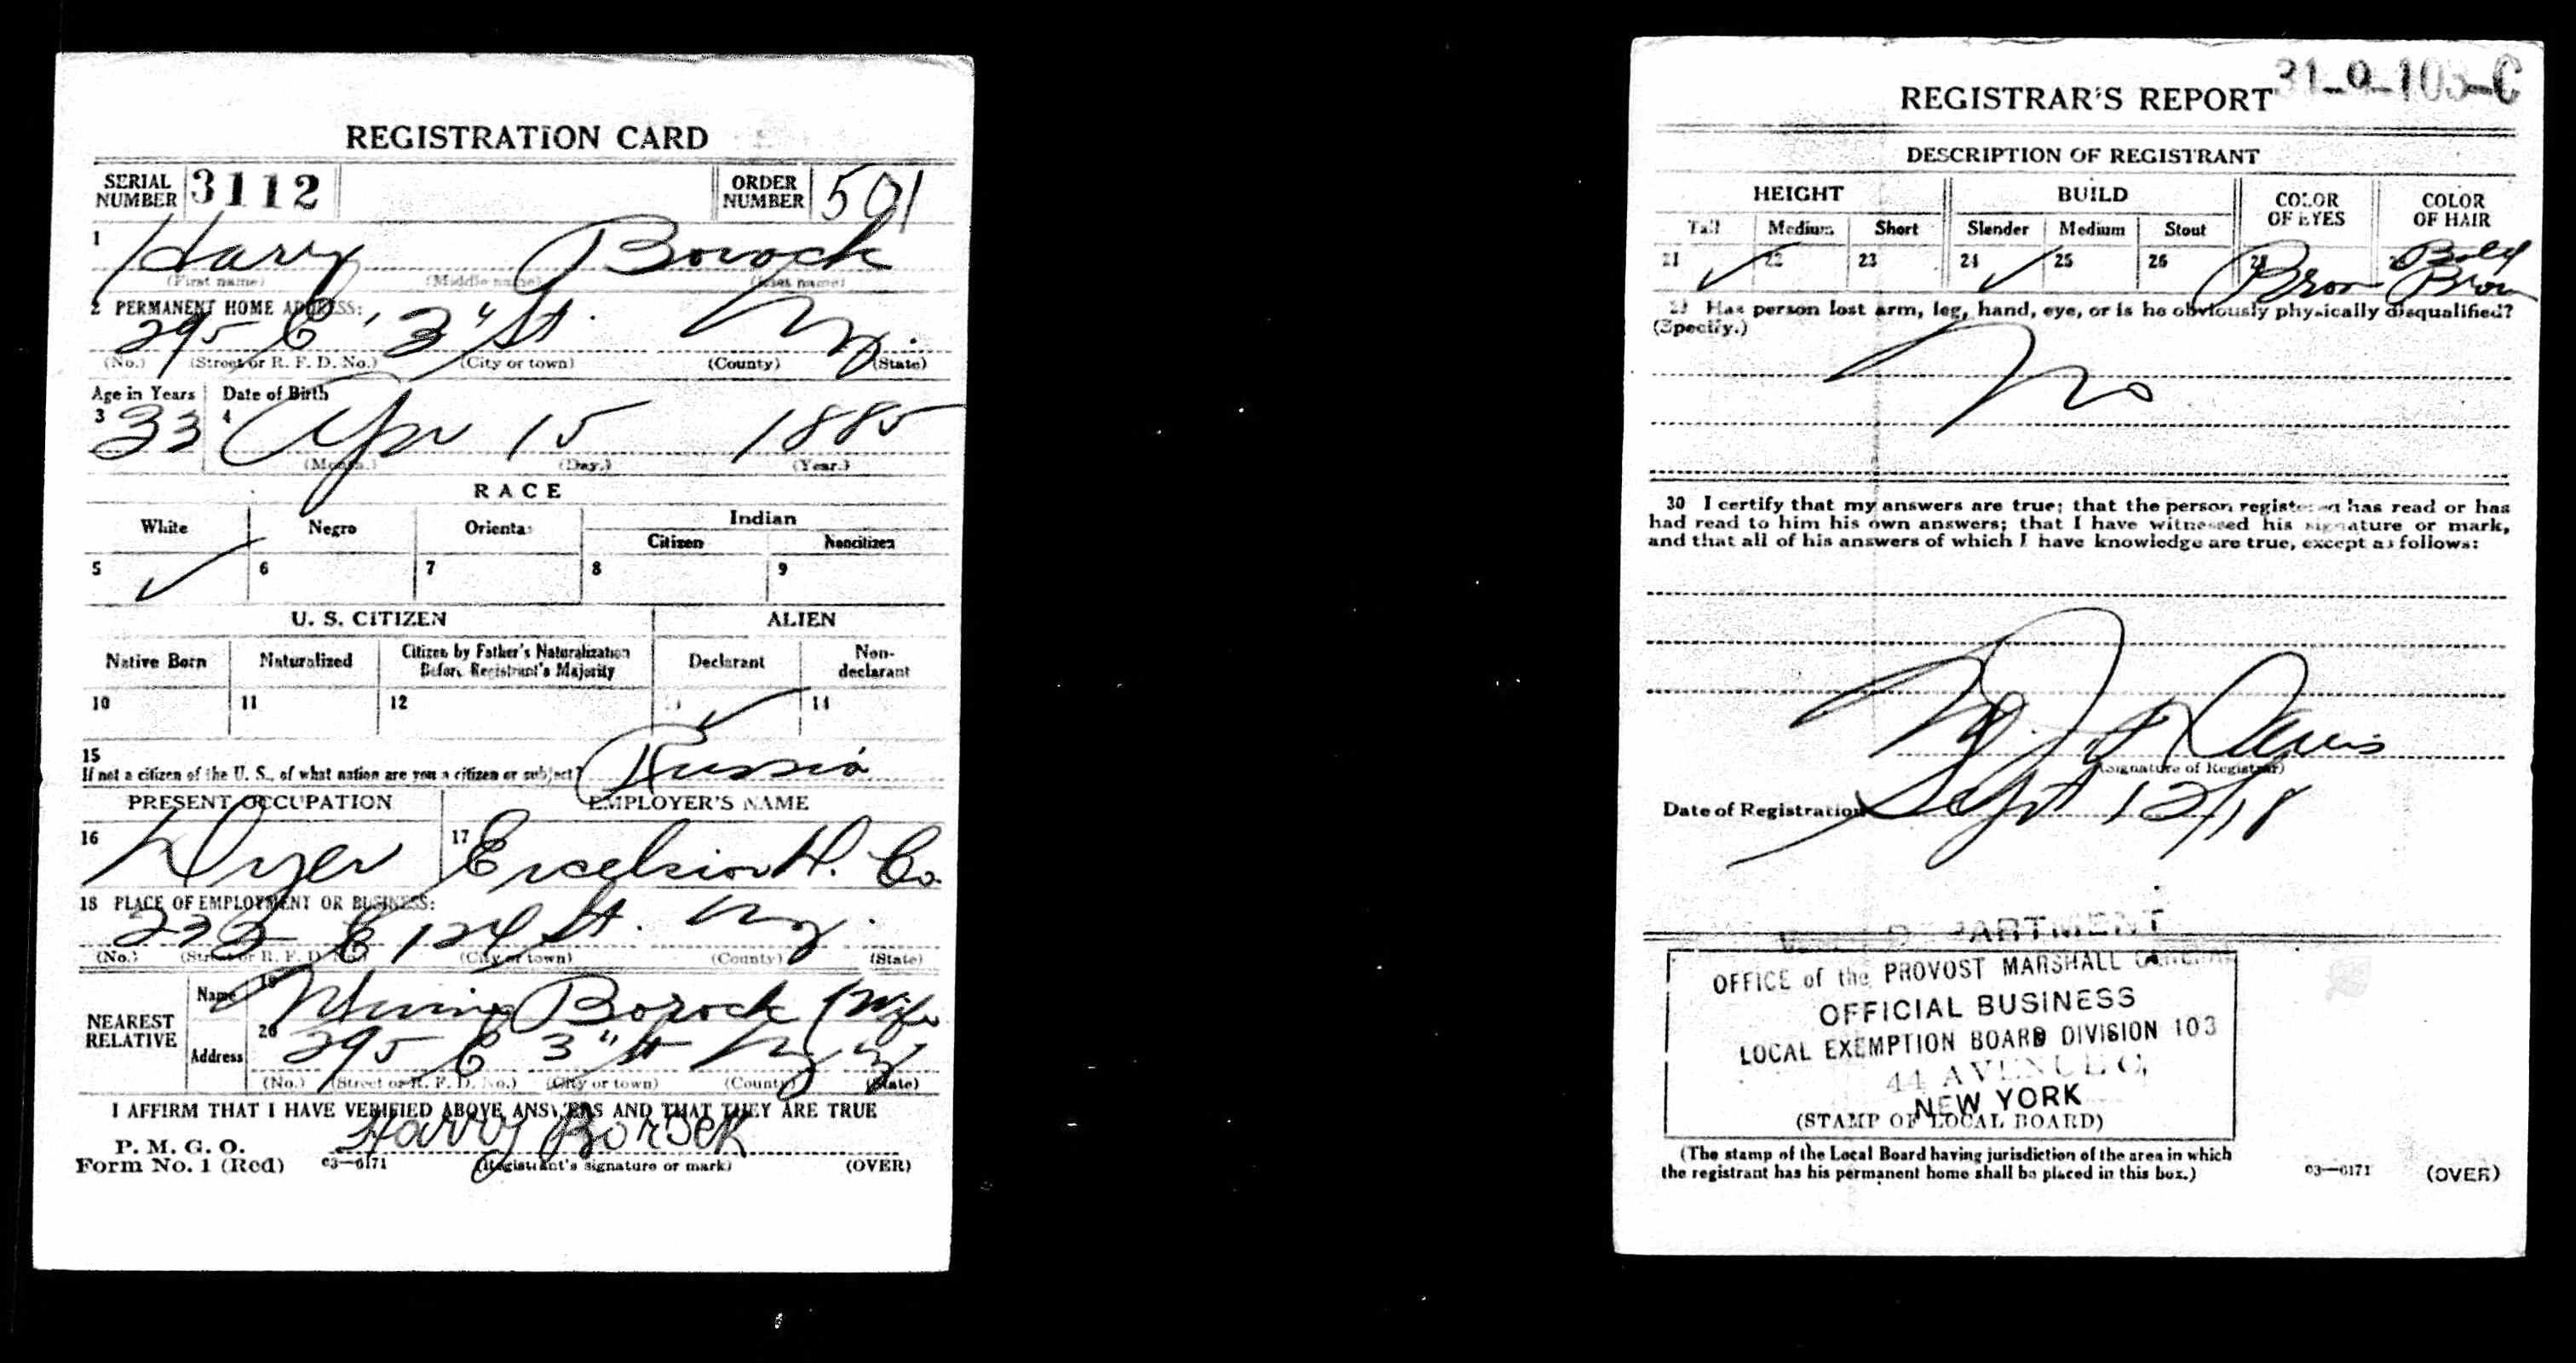 REGISTRATION CARD
SERIAL NUMBER 3112 ORDER NUMBER 501
1 Harry Borock
(First name) (Middle name) (Last name)
2 PERMANENT HOME ADDRESS:
295 E 3" St. N.Y.
(No.) (Street or R. F. D. No.) (City or town) (County) (State)
Age in Years Date of Birth
3 33 4 Apr 15 1885
(Month.) (Day.) (Year.)
RACE
White Negro Oriental Indian
Citizen Noncitizen
5 ✓ 6 7 8 9
U. S. CITIZEN ALIEN
Native Born Naturalized Citizen by Father's Naturalization Before Registrant's Majority Declarant Non-declarant
10 11 12 ✓ 14
15
If not a citizen of the U. S., of what nation are you a citizen or subject? Russia
PRESENT OCCUPATION EMPLOYER'S NAME
16 Dyer 17 Excelsior D. Co.
18 PLACE OF EMPLOYMENT OR BUSINESS:
232 E 124 St. N.Y.
(No.) (Street or R. F. D. No.) (City or town) (County) (State)
NEAREST RELATIVE
Name 19 Borock (Wife
Address 20 295 E 3" St N.Y.
(No.) (Street or R. F. D. No.) (City or town) (County) (State)
I AFFIRM THAT I HAVE VERIFIED ABOVE ANSWERS AND THAT THEY ARE TRUE
P. M. G. O.
Form No. 1 (Red) 03—6171 Harry Borock
(Registrant's signature or mark) (OVER)
31-9-103-C
REGISTRAR'S REPORT
DESCRIPTION OF REGISTRANT
HEIGHT BUILD COLOR OF EYES COLOR OF HAIR
Tall Medium Short Slender Medium Stout
21 ✓ 22 23 24 ✓ 25 26 27 Bron Bald Bron
29 Has person lost arm, leg, hand, eye, or is he obviously physically disqualified?
(Specify.)
No
30 I certify that my answers are true; that the person registered has read or has
had read to him his own answers; that I have witnessed his signature or mark,
and that all of his answers of which I have knowledge are true, except as follows:
Davis
(Signature of Registrar)
Date of Registration Sept 12/18
DEPARTMENT
OFFICE of the PROVOST MARSHALL GENERAL
OFFICIAL BUSINESS
LOCAL EXEMPTION BOARD DIVISION 103
44 AVENUE C,
NEW YORK
(STAMP OF LOCAL BOARD)
(The stamp of the Local Board having jurisdiction of the area in which
the registrant has his permanent home shall be placed in this box.)
03—6171 (OVER)